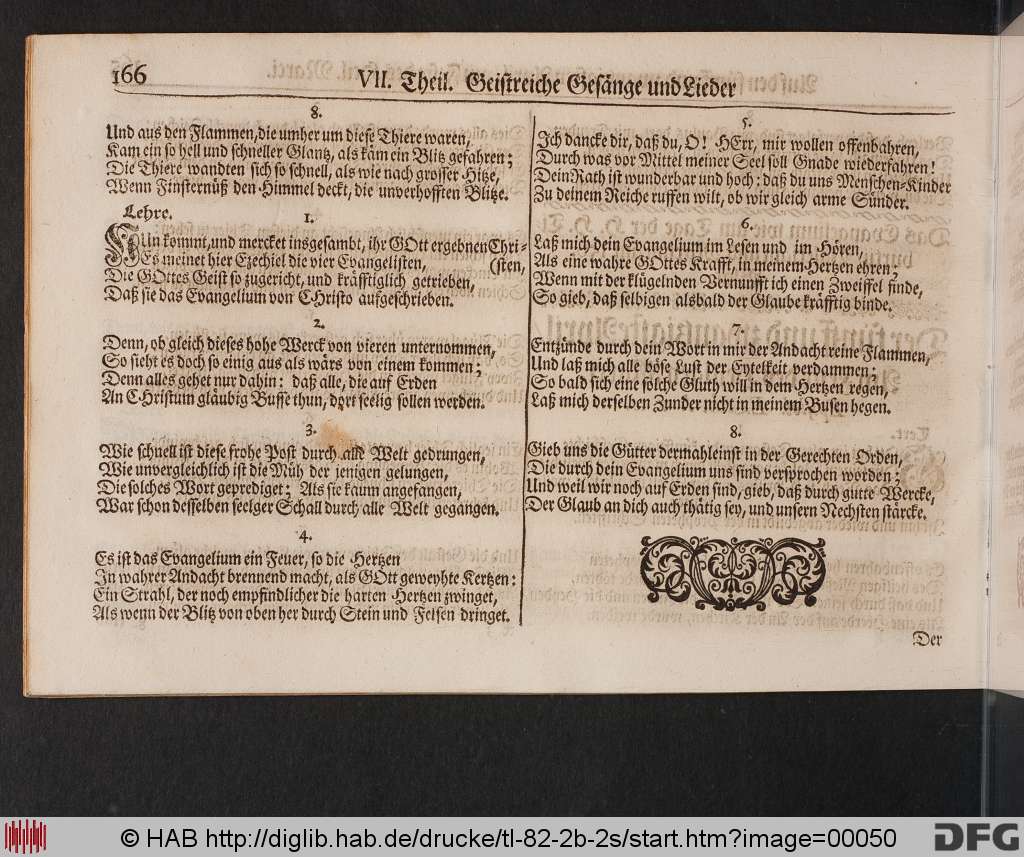 166
VII. Theil. Geistreiche Gesänge und Lieder
8.
Und aus den Flammen, die umher um diese Thiere waren,
Kam ein so hell und schneller Glantz, als käm ein Blitz gefahren;
Die Thiere wandten sich so schnell, als wie nach grosser Hitze,
Wenn Finsternüß den Himmel deckt, die unverhofften Blitze.
Lehre.
1.
NUn kommt, und mercket insgesambt, ihr GOtt ergebnen Chri-
Es meinet hier Ezechiel die vier Evangelisten, (sten,
Die GOttes Geist so zugericht, und kräfftiglich getrieben,
Daß sie das Evangelium von CHristo aufgeschrieben.
2.
Denn, ob gleich dieses hohe Werck von vieren unternommen,
So sieht es doch so einig aus als wärs von einem kommen;
Denn alles gehet nur dahin: daß alle, die auf Erden
An CHristum gläubig Busse thun, dort seelig sollen werden.
3.
Wie schnell ist diese frohe Post durch alle Welt gedrungen,
Wie unvergleichlich ist die Müh der jenigen gelungen,
Die solches Wort geprediget; Als sie kaum angefangen,
War schon desselben seelger Schall durch alle Welt gegangen.
4.
Es ist das Evangelium ein Feuer, so die Hertzen
In wahrer Andacht brennend macht, als GOtt geweyhte Kertzen:
Ein Strahl, der noch empfindlicher die harten Hertzen zwinget,
Als wenn der Blitz von oben her durch Stein und Felsen dringet.
5.
Ich dancke dir, daß du, O! HErr, mir wollen offenbahren,
Durch was vor Mittel meiner Seel soll Gnade wiederfahren!
Dein Rath ist wunderbar und hoch: daß du uns Menschen-Kinder
Zu deinem Reiche ruffen wilt, ob wir gleich arme Sünder.
6.
Laß mich dein Evangelium im Lesen und im Hören,
Als eine wahre GOttes Krafft, in meinem Hertzen ehren;
Wenn mit der klügelnden Vernunfft ich einen Zweiffel finde,
So gieb, daß selbigen alsbald der Glaube kräfftig binde.
7.
Entzünde durch dein Wort in mir der Andacht reine Flammen,
Und laß mich alle böse Lust der Eytelkeit verdammen;
So bald sich eine solche Gluth will in dem Hertzen regen,
Laß mich derselben Zunder nicht in meinem Busen hegen.
8.
Gieb uns die Gütter dermahleinst in der Gerechten Orden,
Die durch dein Evangelium uns sind versprochen worden;
Und weil wir noch auf Erden sind, gieb, daß durch gutte Wercke,
Der Glaub an dich auch thätig sey, und unsern Nechsten stärcke.
Der
© HAB http://diglib.hab.de/drucke/tl-82-2b-2s/start.htm?image=00050
DFG